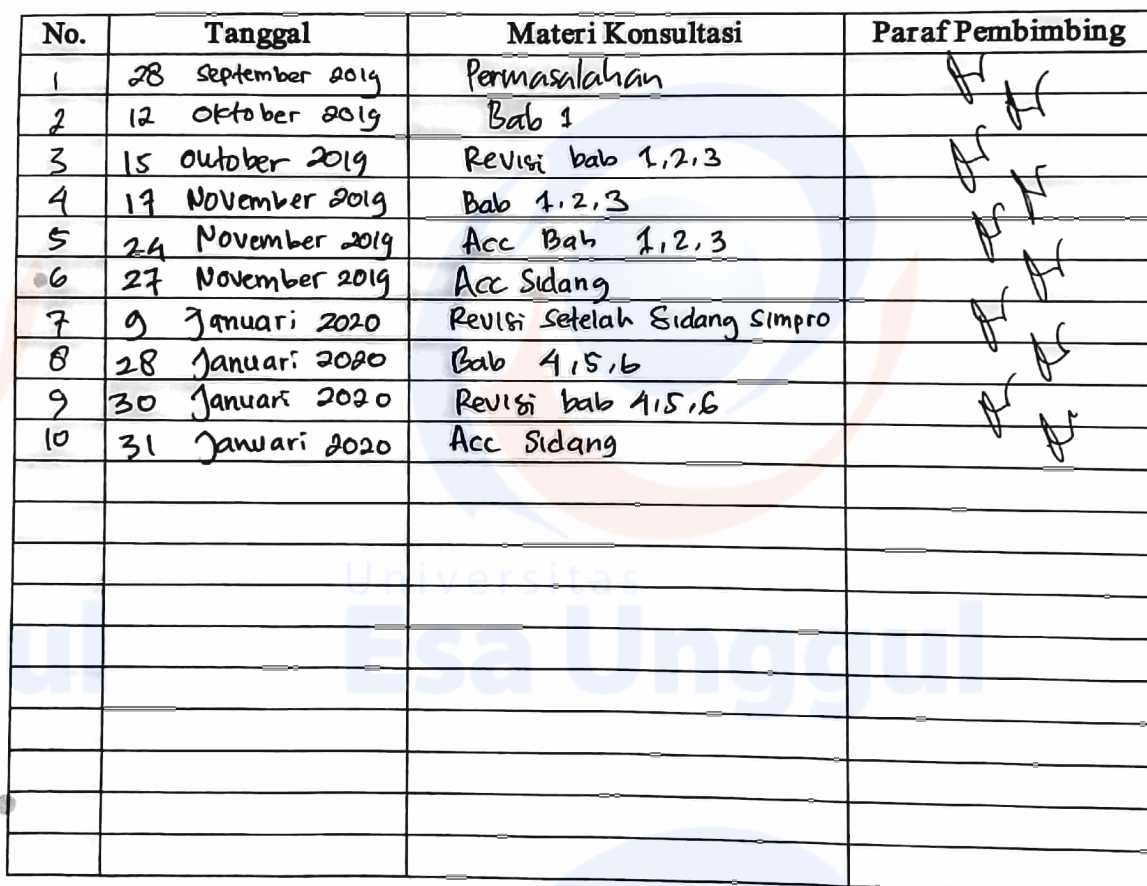 No. Tanggal Materi Konsultasi Paraf Pembimbing
1 28 September 2019 Permasalahan
2 12 Oktober 2019 Bab 1
3 15 Outober 2019 Revisi bab 1,2,3
4 17 November 2019 Bab 1.2.3
5 24 November 2019 Acc Bab 1,2,3
6 27 November 2019 Acc Sidang
7 9 Januari 2020 Revisi Setelah Sidang Simpro
8 28 Januari 2020 Bab 4,5,6
9 30 Januari 2020 Revisi bab 4,5,6
10 31 Januari 2020 Acc Sidang
Universitas
ul Esa Unggul